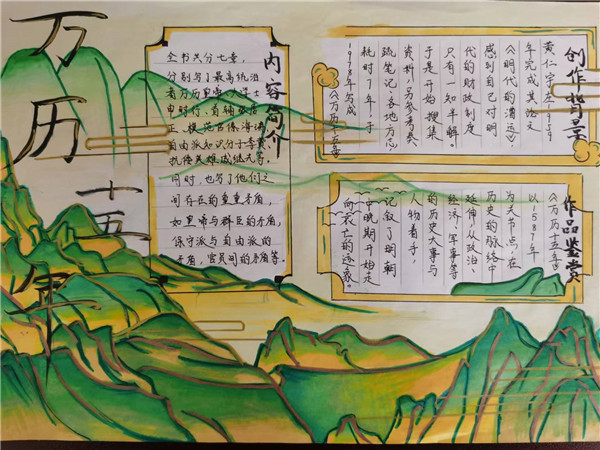 万历十五年
内容简介
全书共分七章，
分别写了最高统治
者万历皇帝、大学士
申时行、首辅张居
正、模范官僚海瑞、
自由派知识分子李贽、
抗倭英雄戚继光等。
同时，也写了他们之
间存在的重重矛盾，
如皇帝与群臣的矛盾，
保守派与自由派的
矛盾，官员间的矛盾等。
创作背景
黄仁宇在1959
年完成其论文
《明代的漕运》，
感到自己对明
代的财政制度
只有一知半解。
于是开始搜集
资料，另参考奏
疏笔记，各地方志，
耗时7年，于
1978年写成
《万历十五年》
作品鉴赏
《万历十五年》
以1587年
为关节点，在
历史的脉络中
延伸，从政治、
经济、军事等
的历史大事与
人物着手，
记叙了明朝
中晚期开始走
向衰亡的迹象。